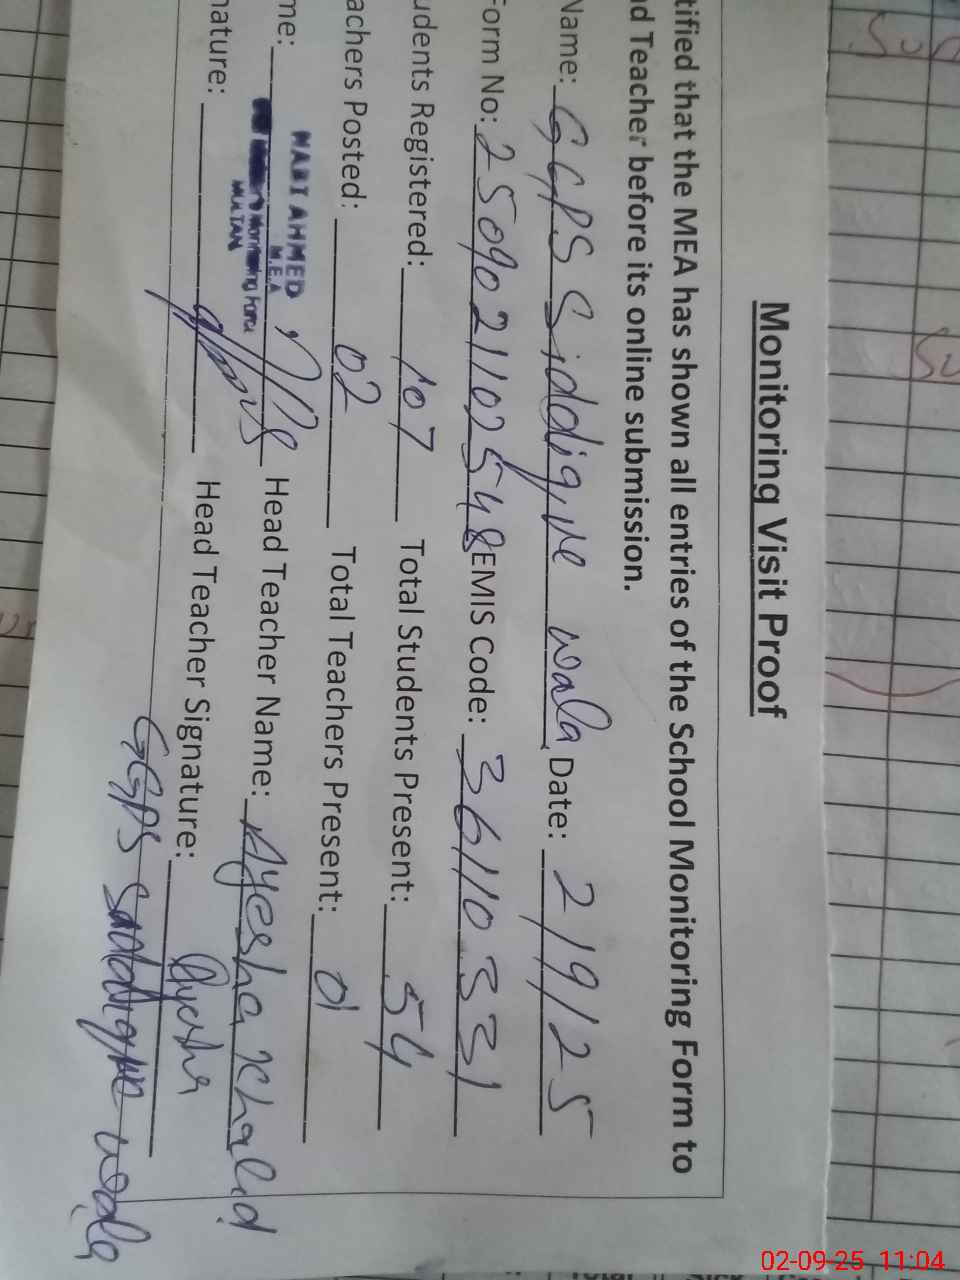 Monitoring Visit Proof
tified that the MEA has shown all entries of the School Monitoring Form to
d Teacher before its online submission.
Name: GGPS Siddiqve wala Date: 2/9/25
Form No: 2509021102548 EMIS Code: 36110331
udents Registered: 107 Total Students Present: 54
achers Posted: 02 Total Teachers Present: 01
me: Head Teacher Name: Ayesha Khalid
NABI AHMED
M.E.A
Monitoring Force
MULTAN
nature: Head Teacher Signature: Ayesha
GGPS Saddique wala
02-09-25 11:04